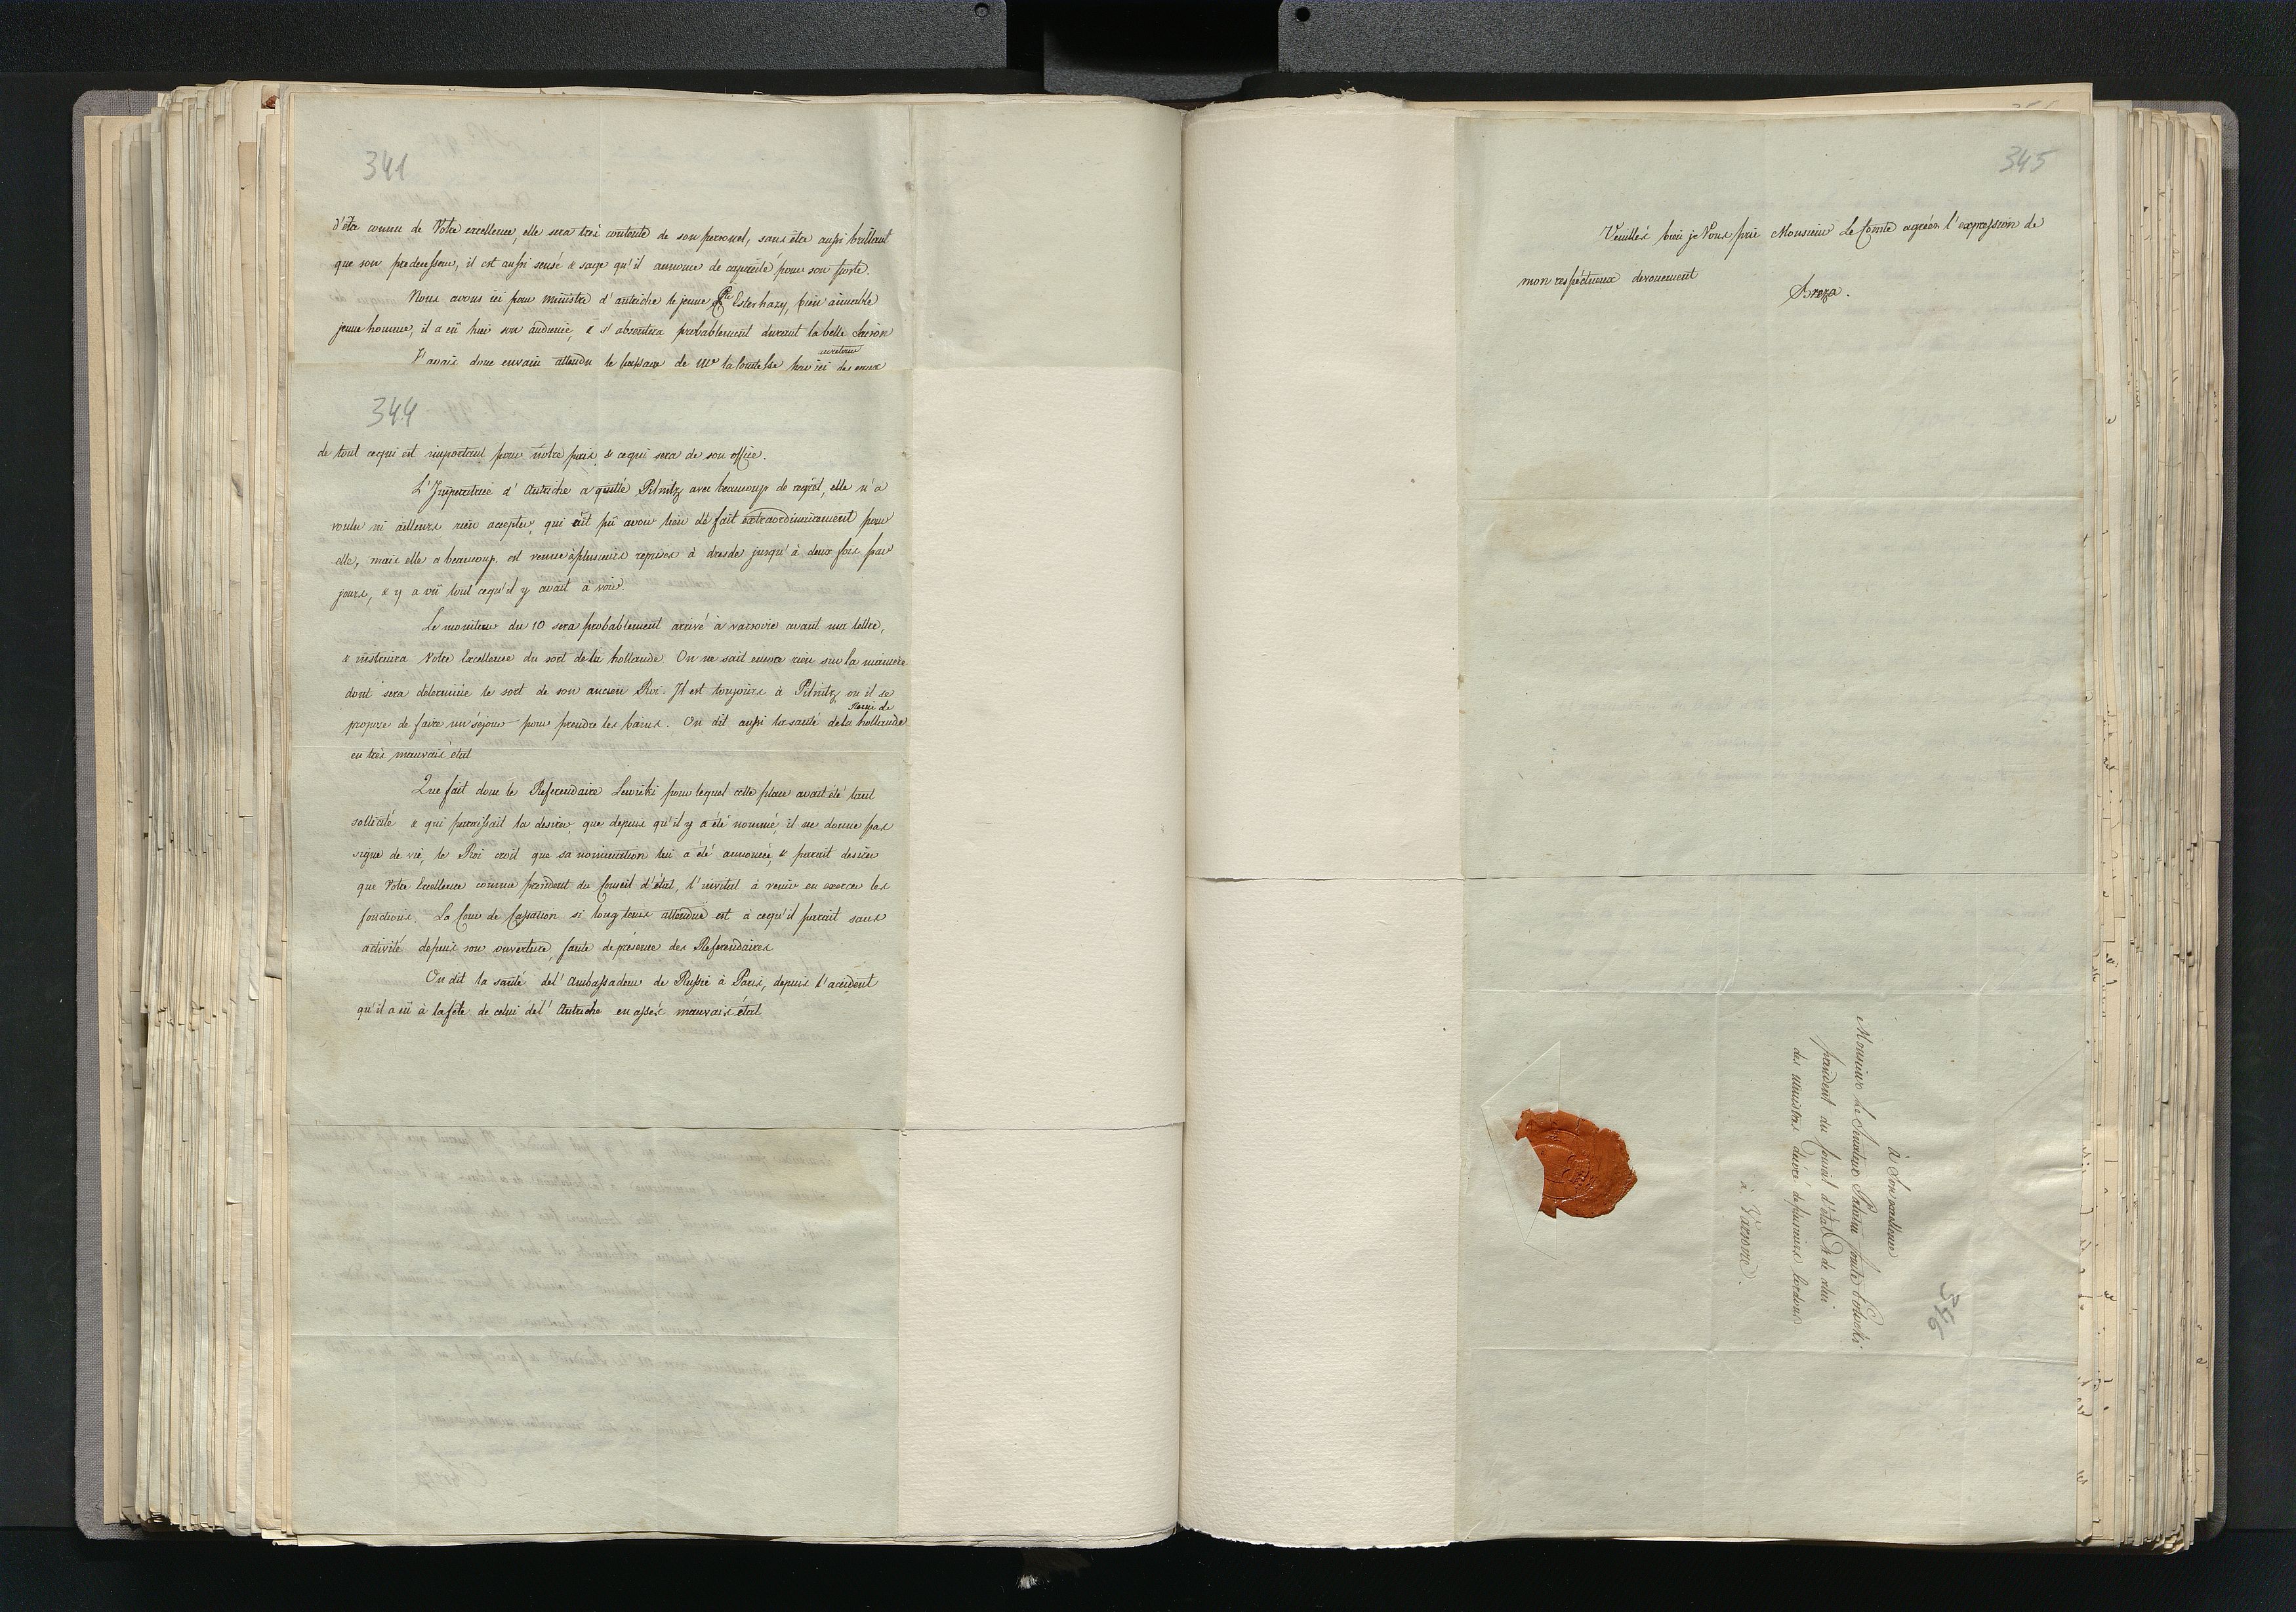 341
d'être connu de Votre excellence, elle sera très contente de son personel, sans être aussi brillant
que son predecesseur, il est aussi sensé & sage qu'il annonce de capacité pour son poste.
Nous avons ici pour ministre d'autriche le jeune Pce Esterhazy, bien aimable
jeune homme, il a eü hier son audience, & s'absentera probablement durant la belle saison
J'avais donc envain attendu le passage de me la Comtesse par ici des eaux
344
de tout cequi est important pour nôtre païs, & cequi sera de son office.
L'Imperatrice d'Autriche a quitté Pilnitz avec beaucoup de regret, elle n'a
voulu ni ailleurs rien accepter, qui eüt pü avoir lieu dé fait extraordinairement pour
elle, mais elle a beaucoup. est venue à plusieurs reprises à dresde jusqu'à deux fois par
jours, & y a vü tout cequ'il y avait à voir.
Le moniteur du 10 sera probablement arrivé à varsovie avant ma lettre,
& instruira Votre Excellence du sort de la hollande. On ne sait encore rien sur la maniere
dont sera déterminée le sort de son ancien Roi. Il est toujours à Pilnitz ou il se
propose de faire un séjour pour prendre les bains. On dit aussi la santé dela Reine de hollande
en très mauvais état
Que fait donc le Referendaire Lewicki pour lequel cette place avait été tant
sollicité & qui paraissait la desirer, que depuis qu'il y a été nommé, il ne donne pas
signe de vie, le Roi croit que sa nomination lui a été annoncée, & parait desirer
que Votre Excellence comme president du Conseil d'état, l'invitat à venir en exercer les
fonctions. La Cour de Cassation si long tems attendue est à cequ'il parait sans
activité depuis son ouverture, faute de présence des Referendaires
On dit la santé del'Ambassadeur de Russie à Paris, depuis l'accident
qu'il a eü à la fête de celui del'Autriche en assés mauvais état
345
Veuillés bien je Vous prie Monsieur Le Comte agréer l'expression de
mon respectueux devouement
Breza.
346
à Son excellence
Monsieur Le Senateur Palatin Comte Potocki
president du Conseil d'état & de celui
des ministres décoré de plusieurs Cordons
à Varsovie.